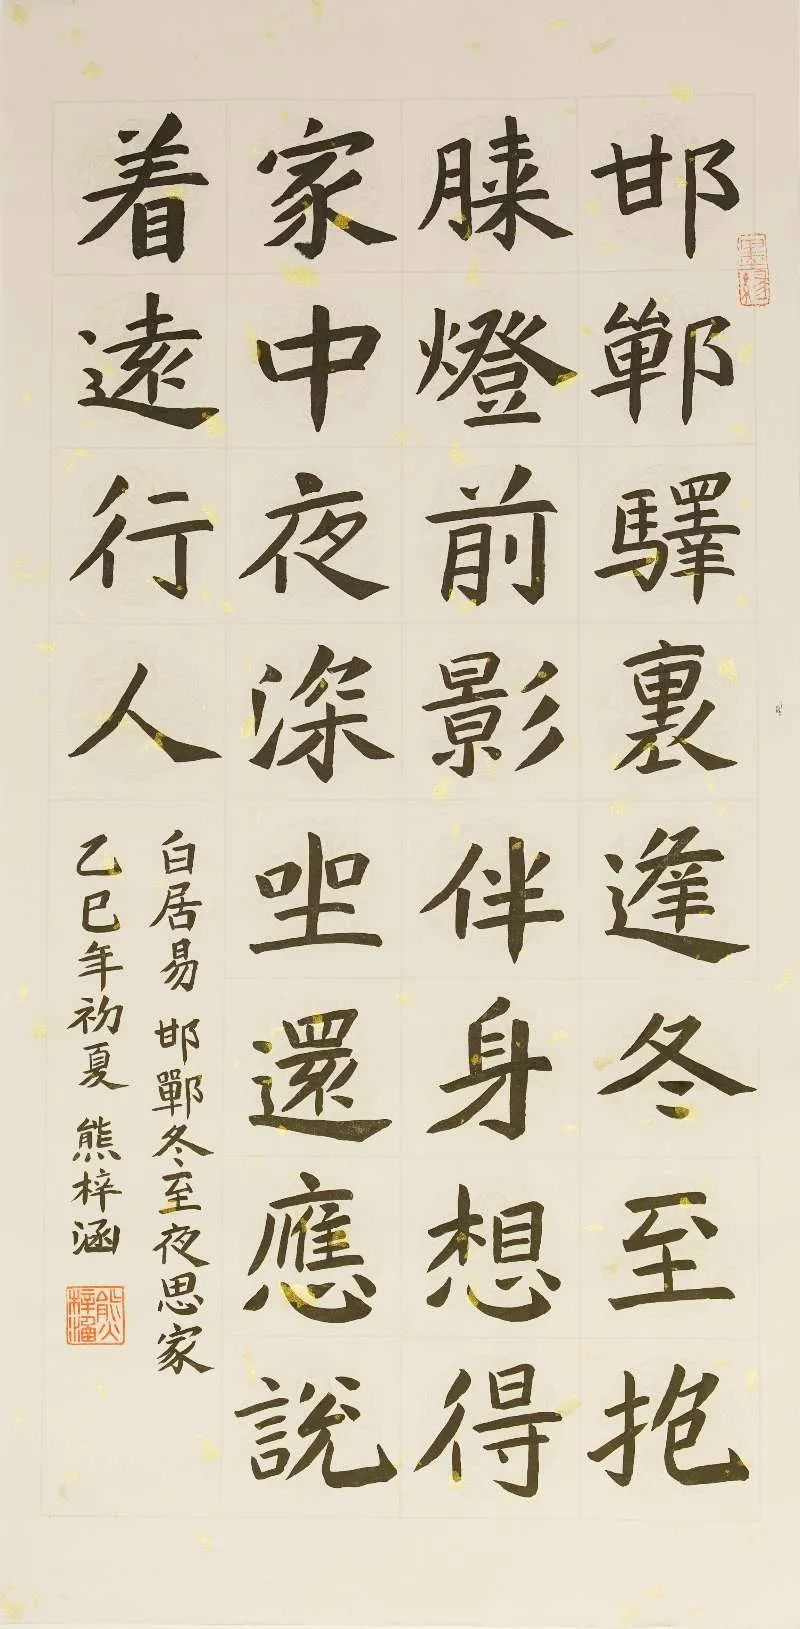 邯鄲驛裏逢冬至抱
膝燈前影伴身想得
家中夜深坐還應說
着遠行人
白居易 邯鄲冬至夜思家
乙巳年初夏 熊梓涵
熊梓涵